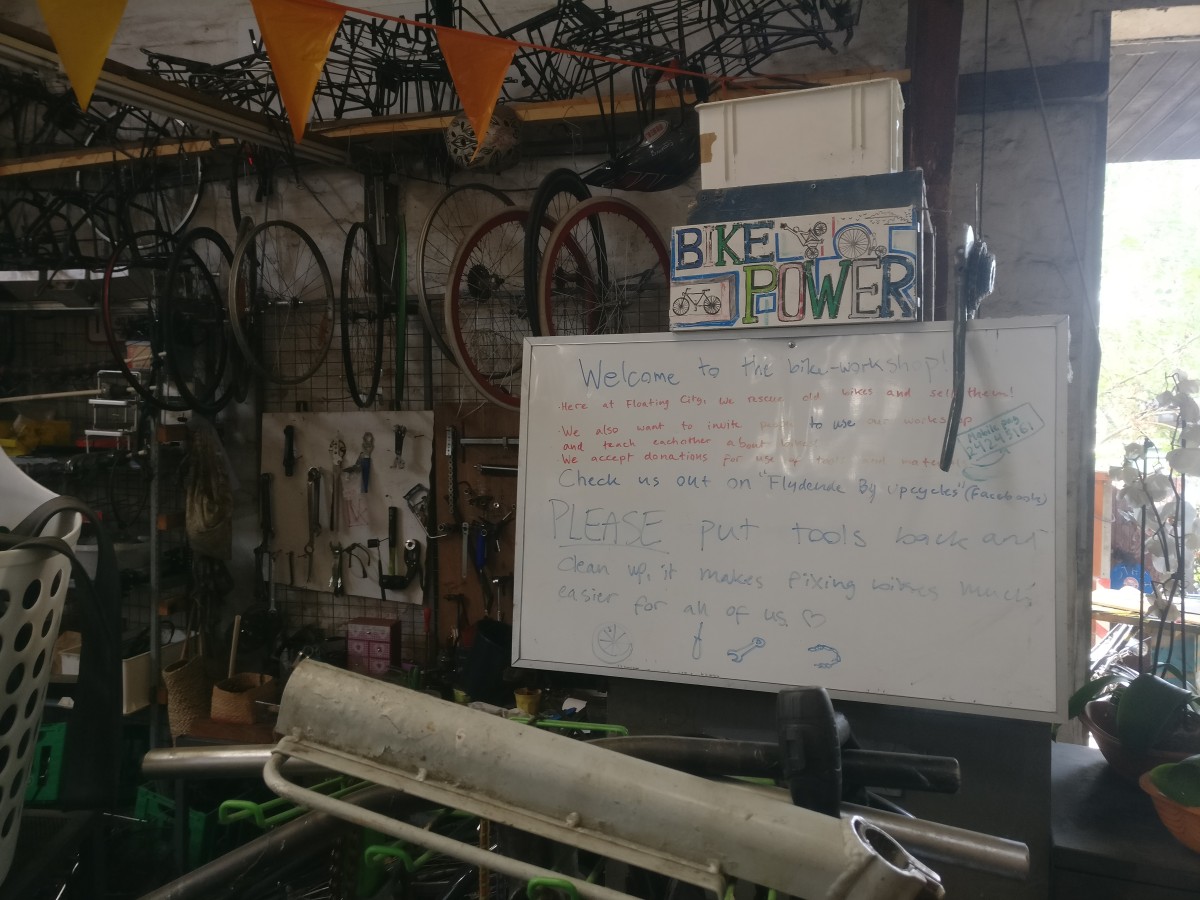 BIKE
POWER
Welcome to the bike-workshop!
·Here at Floating City, We rescue old bikes and sell them!
·We also want to invite to use our workshop
and teach eachother about
We accept donations for use of tools and
Mobile pay
Check us out on "Flydende By Upcycles" (Facebook)
PLEASE put tools back and
clean up, it makes fixing much
easier for all of us ♡